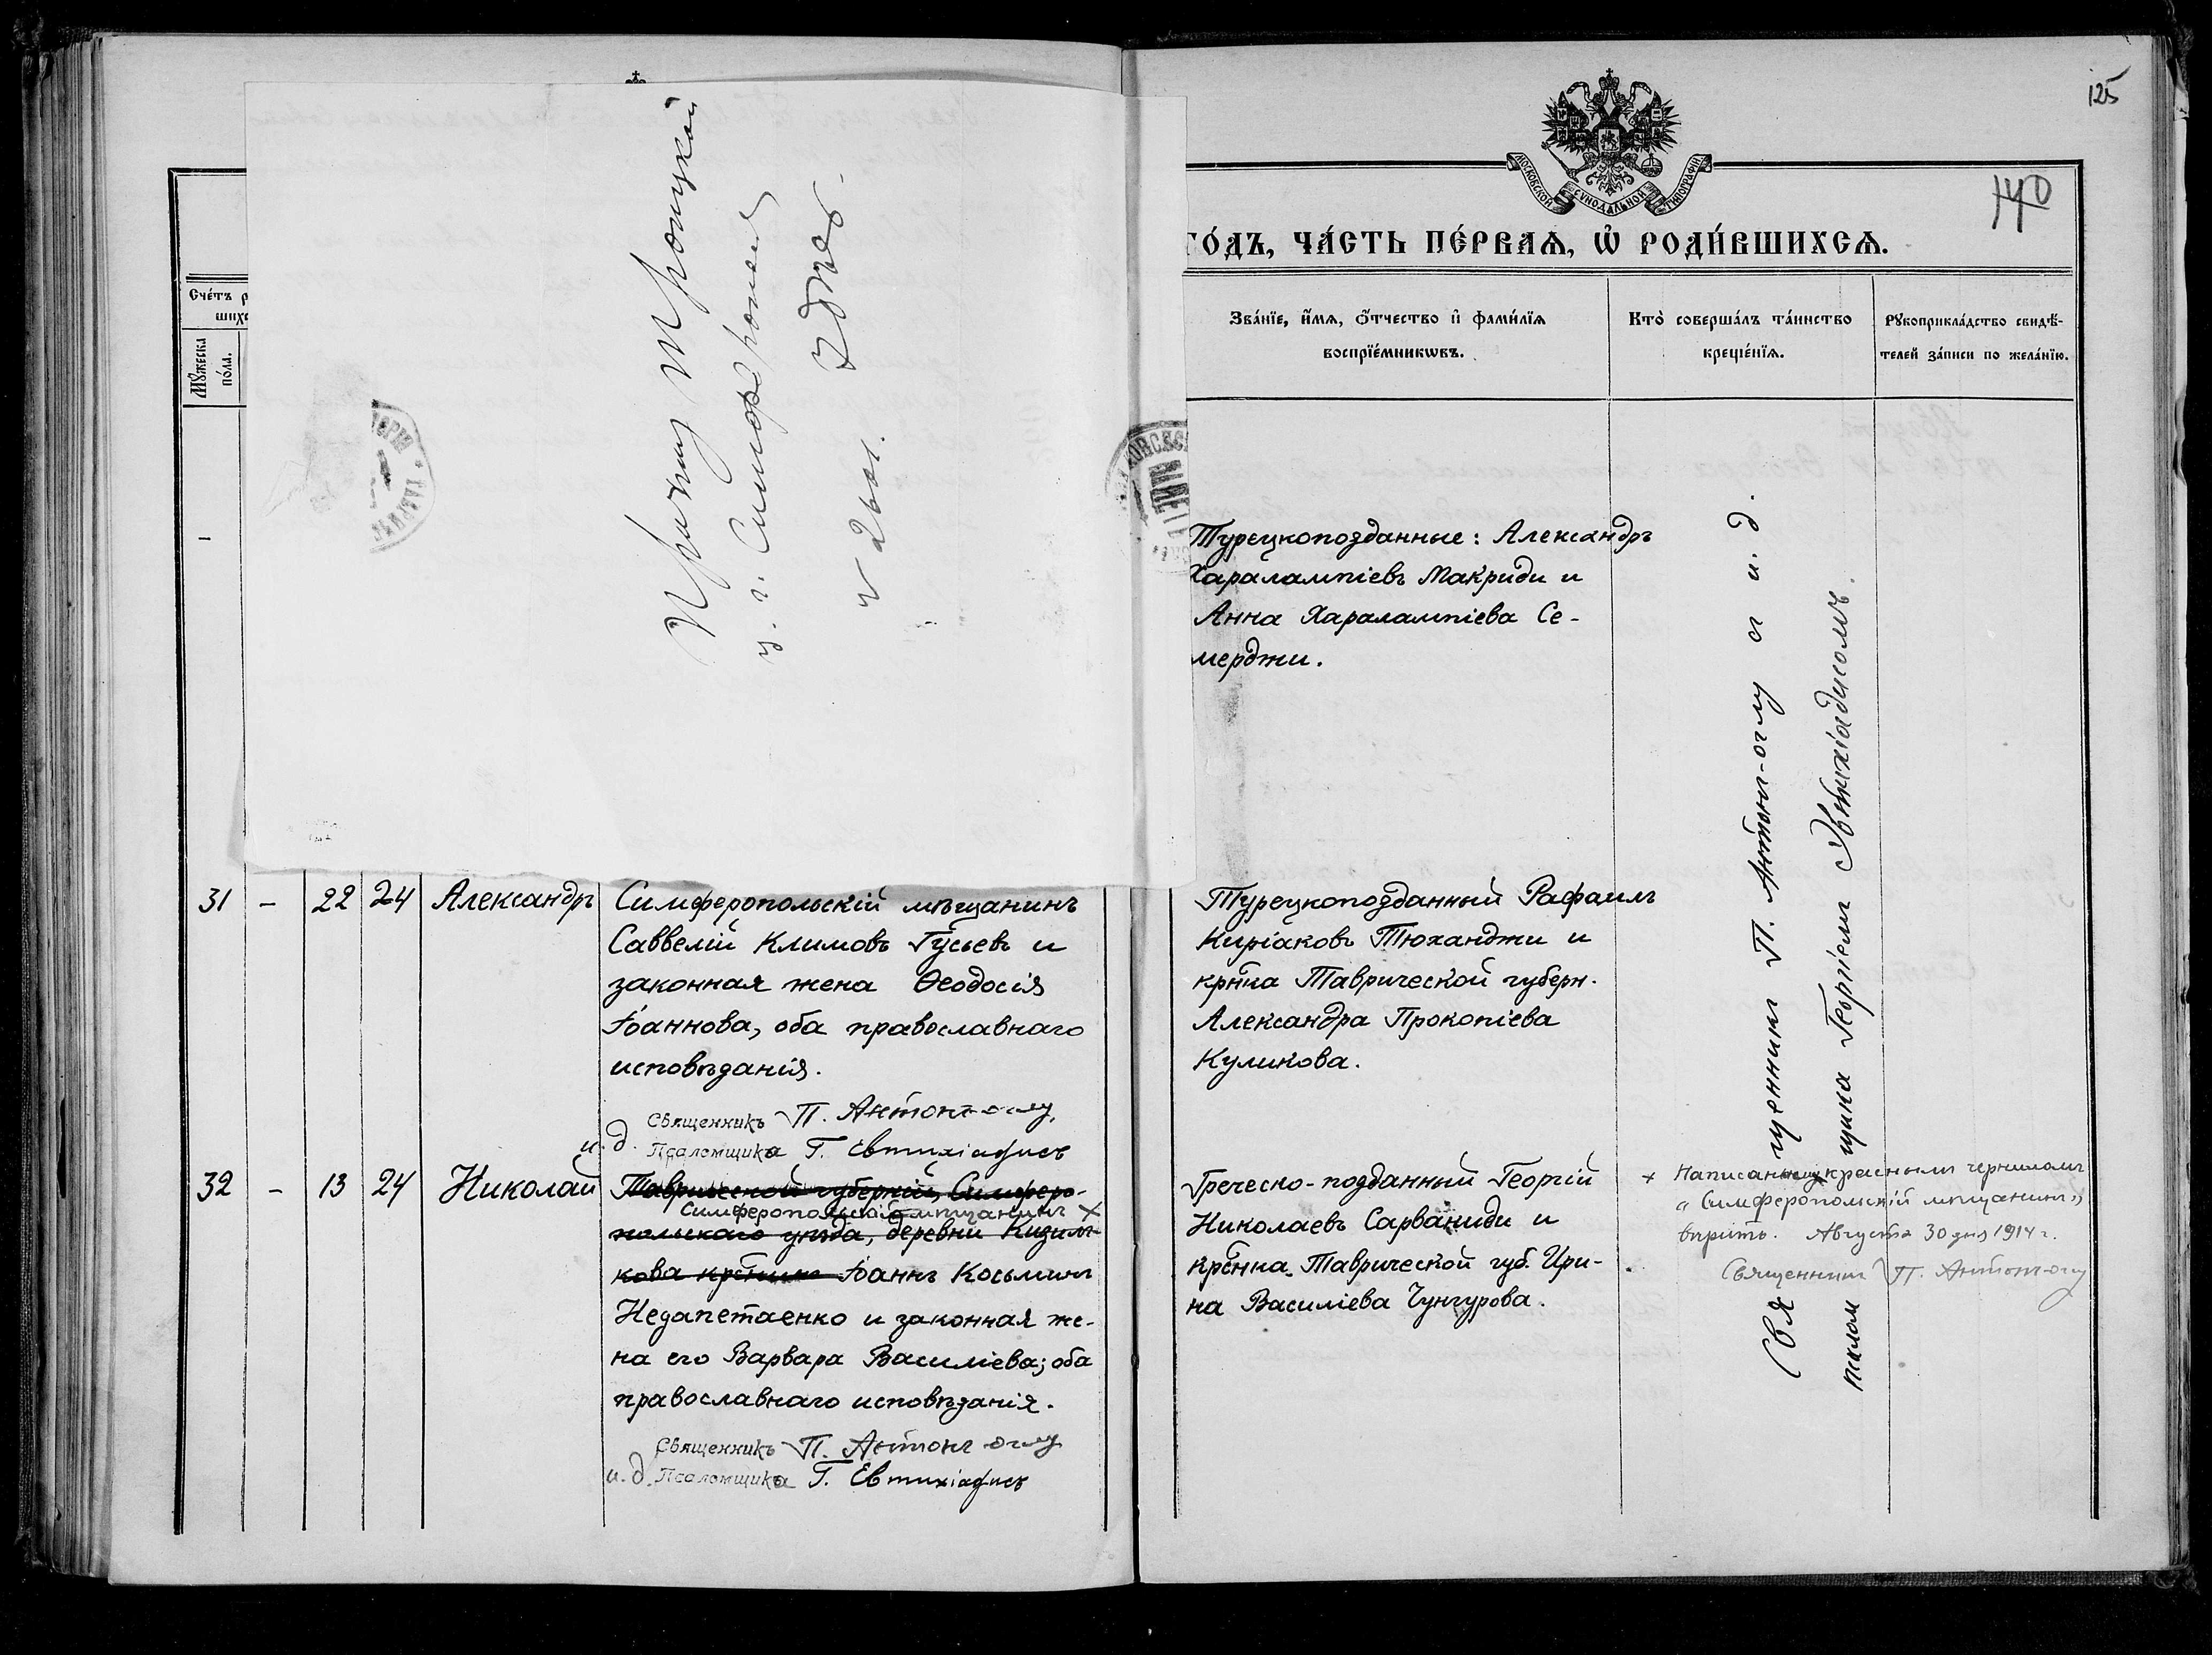 125
140
МОСКОВСКОЙ СѴНОДАЛЬНОЙ ТИПОГРАФІИ
ГО́ДЪ, ЧА́СТЬ ПЕ́РВАѦ, Ѽ РОДИ́ВШИХСѦ.
Сче́тъ р
шихс
Мꙋ́жеска
по́ла.
Зва́нїе, и҆́мѧ, ѻ҆́тчество и҆ фами́лїѧ
воспрїе́мникѡвъ.
Кто̀ соверша́лъ та́инство
креще́нїѧ.
Рꙋкоприкла́дство свидѣ́-
телей за́писи по жела́нїю.
Причту Троицкой
ц. г. Симферополя
Здѣсь
Турецкоподданные: Александръ
Харалампіевъ Макриди и
Анна Харалампіева Се-
мерджи.
31 – 22 24 Александръ
Симферопольскій мѣщанинъ
Саввелій Климовъ Гусьевъ и
законная жена Ѳеодосія
Іоаннова, оба православнаго
исповѣданія.
Священникъ П. Антонъ-оглу
и. д. Псаломщика Г. Евтихіадисъ
Турецкоподданный Рафаилъ
Киріаковъ Тюханджи и
крн̃ка Таврической губерн.
Александра Прокопіева
Куликова.
32 – 13 24 Николай
Таврической губерніи, Симферо-
Симферопольскій мѣщанинъ ×
польскаго уѣзда, деревни
Іоаннъ Косьминъ
Недапетаенко и законная же-
на его Варвара Василіева; оба
православнаго исповѣданія.
Священникъ П. Антонъ-оглу
и. д. Псаломщика Г. Евтихіадисъ
Греческо-подданный Георгій
Николаевъ Сарваниди и
крестнка Таврической губ. Ири-
на Василіева Чунгурова.
Священникъ П. Антонъ-оглу съ и. д.
псаломщика Георгіемъ Евтихіадисомъ.
× Написанному красными чернилами
"Симферопольскій мѣщанинъ"
вѣрить. Августа 30 дня 1914 г.
Священникъ П. Антонъ-оглу